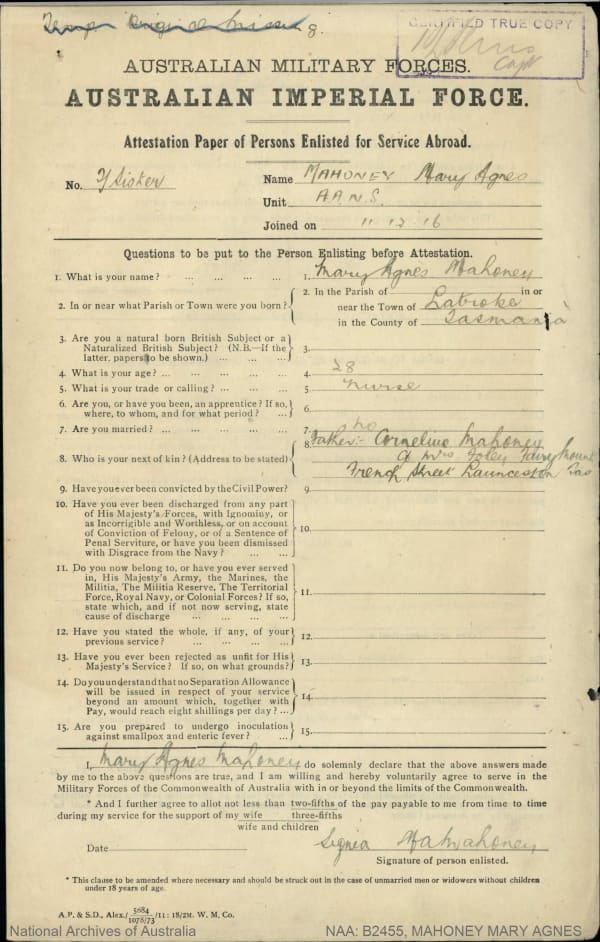 Temp original missing
CERTIFIED TRUE COPY
Capt
AUSTRALIAN MILITARY FORCES.
AUSTRALIAN IMPERIAL FORCE.
Attestation Paper of Persons Enlisted for Service Abroad.
No. T/Sister
Name MAHONEY Mary Agnes
Unit A.A.N.S.
Joined on 11 12 16
Questions to be put to the Person Enlisting before Attestation.
1. What is your name? ... ... ... ... 1. Mary Agnes Mahoney
2. In or near what Parish or Town were you born? 2. In the Parish of in or
near the Town of Latrobe
in the County of Tasmania
3. Are you a natural born British Subject or a
Naturalized British Subject? (N.B.—If the
latter, papers to be shown.) ... ... ... 3.
4. What is your age? ... ... ... ... 4. 28
5. What is your trade or calling? ... ... ... 5. Nurse
6. Are you, or have you been, an apprentice? If so,
where, to whom, and for what period? ... 6.
7. Are you married? ... ... ... ... 7. no
8. Who is your next of kin? (Address to be stated) 8. Father:- Cornelius Mahoney
C/ Mrs Foley Fairy Mount
French Street Launceston Tas
9. Have you ever been convicted by the Civil Power? 9.
10. Have you ever been discharged from any part
of His Majesty's Forces, with Ignominy, or
as Incorrigible and Worthless, or on account
of Conviction of Felony, or of a Sentence
of Penal Serviture, or have you been dismissed
with Disgrace from the Navy? ... ... 10.
11. Do you now belong to, or have you ever served
in, His Majesty's Army, the Marines, the
Militia, The Militia Reserve, The Territorial
Force, Royal Navy, or Colonial Forces? If so,
state which, and if not now serving, state
cause of discharge ... ... ... ... 11.
12. Have you stated the whole, if any, of your
previous service? ... ... ... ... 12.
13. Have you ever been rejected as unfit for His
Majesty's Service? If so, on what grounds? 13.
14. Do you understand that no Separation Allowance
will be issued in respect of your service
beyond an amount which, together with
Pay, would reach eight shillings per day? ... 14.
15. Are you prepared to undergo inoculation
against smallpox and enteric fever? ... 15.
I, Mary Agnes Mahoney do solemnly declare that the above answers made
by me to the above questions are true, and I am willing and hereby voluntarily agree to serve in the
Military Forces of the Commonwealth of Australia with in or beyond the limits of the Commonwealth.
* And I further agree to allot not less than two-fifths of the pay payable to me from time to time
during my service for the support of my wife three-fifths
wife and children
Date Signed M A Mahoney
Signature of person enlisted.
* This clause to be amended where necessary and should be struck out in the case of unmarried men or widowers without children
under 18 years of age.
A.P. & S.D., Alex./ 5684
1078/73 /11: 18/2M. W. M. Co.
National Archives of Australia NAA: B2455, MAHONEY MARY AGNES